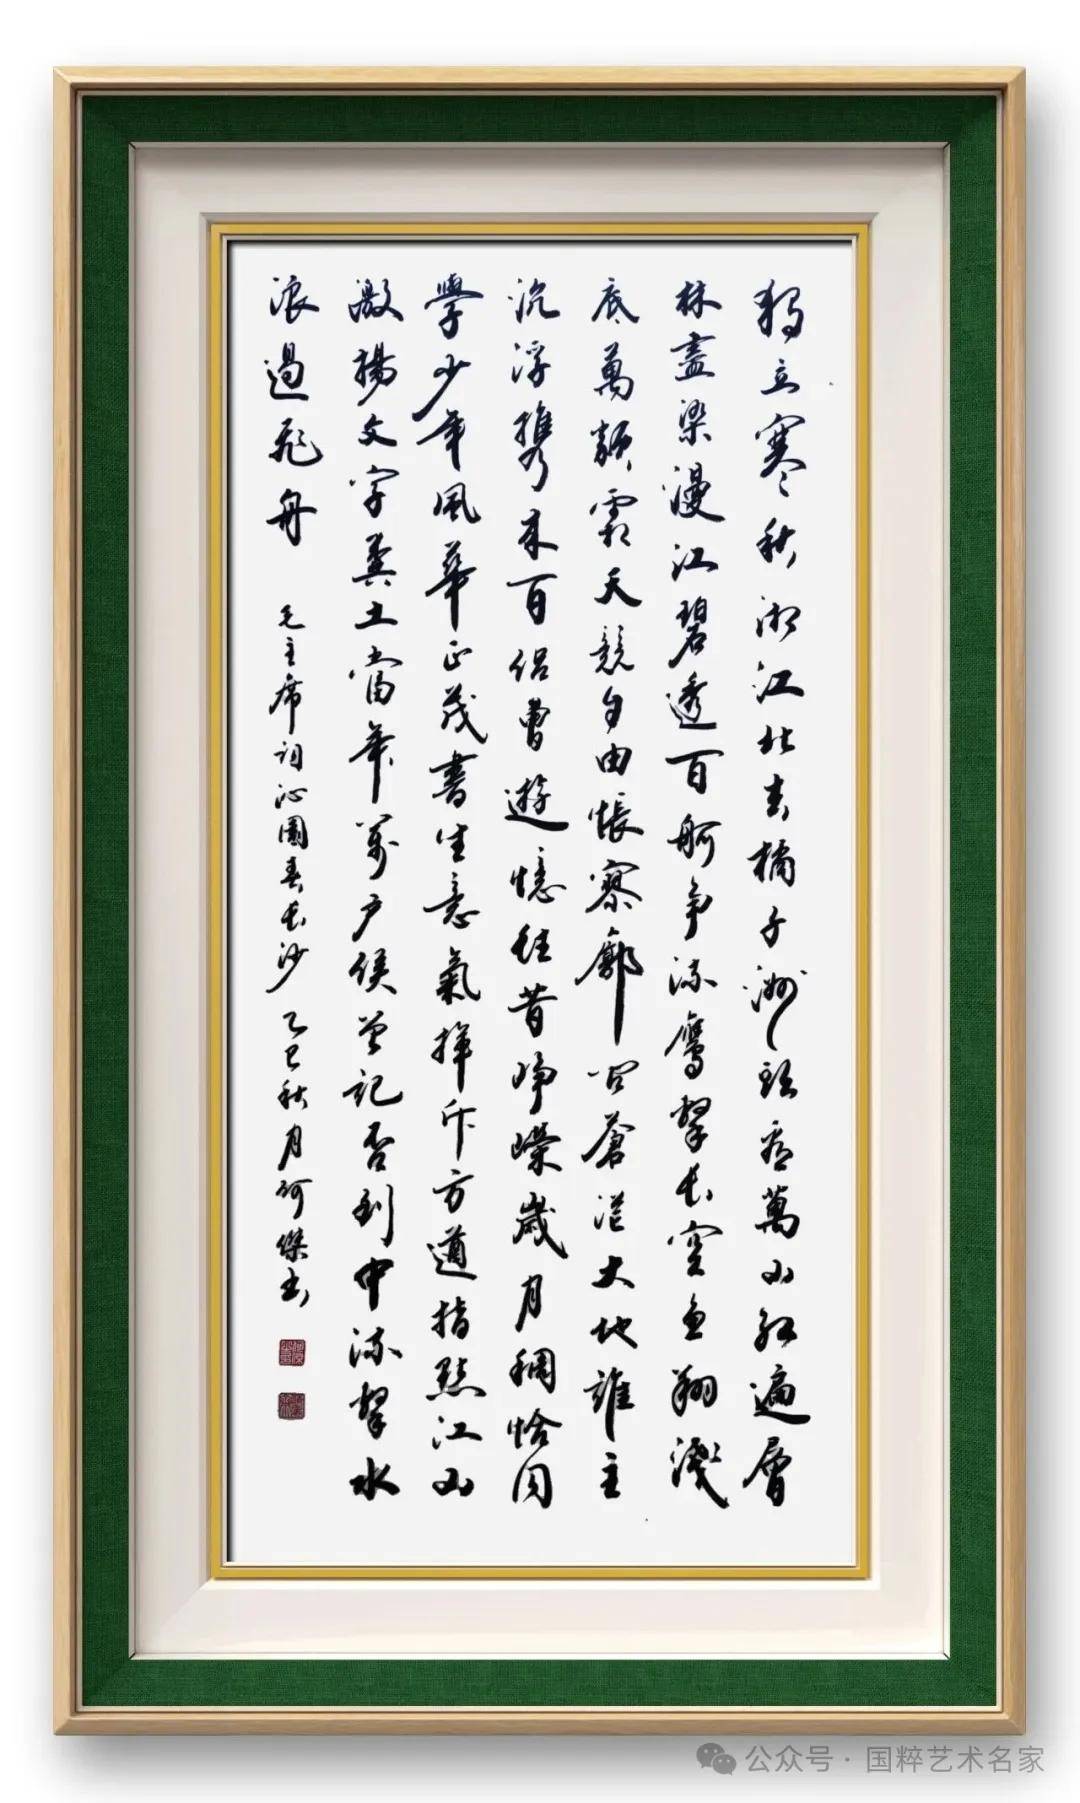 獨立寒秋湘江北去橘子洲頭看萬山紅遍層
林盡染漫江碧透百舸争流鷹擊長空魚翔淺
底萬類霜天競自由悵寥廓問蒼茫大地誰主
沉浮攜來百侣曹遊憶往昔崢嶸歲月稠恰同
學少年風華正茂書生意氣揮斥方遒指點江山
激揚文字糞土當年萬户侯曾記否到中流擊水
浪遏飛舟 毛主席詞沁園春長沙 乙巳秋月何傑書
公众号 · 国粹艺术名家